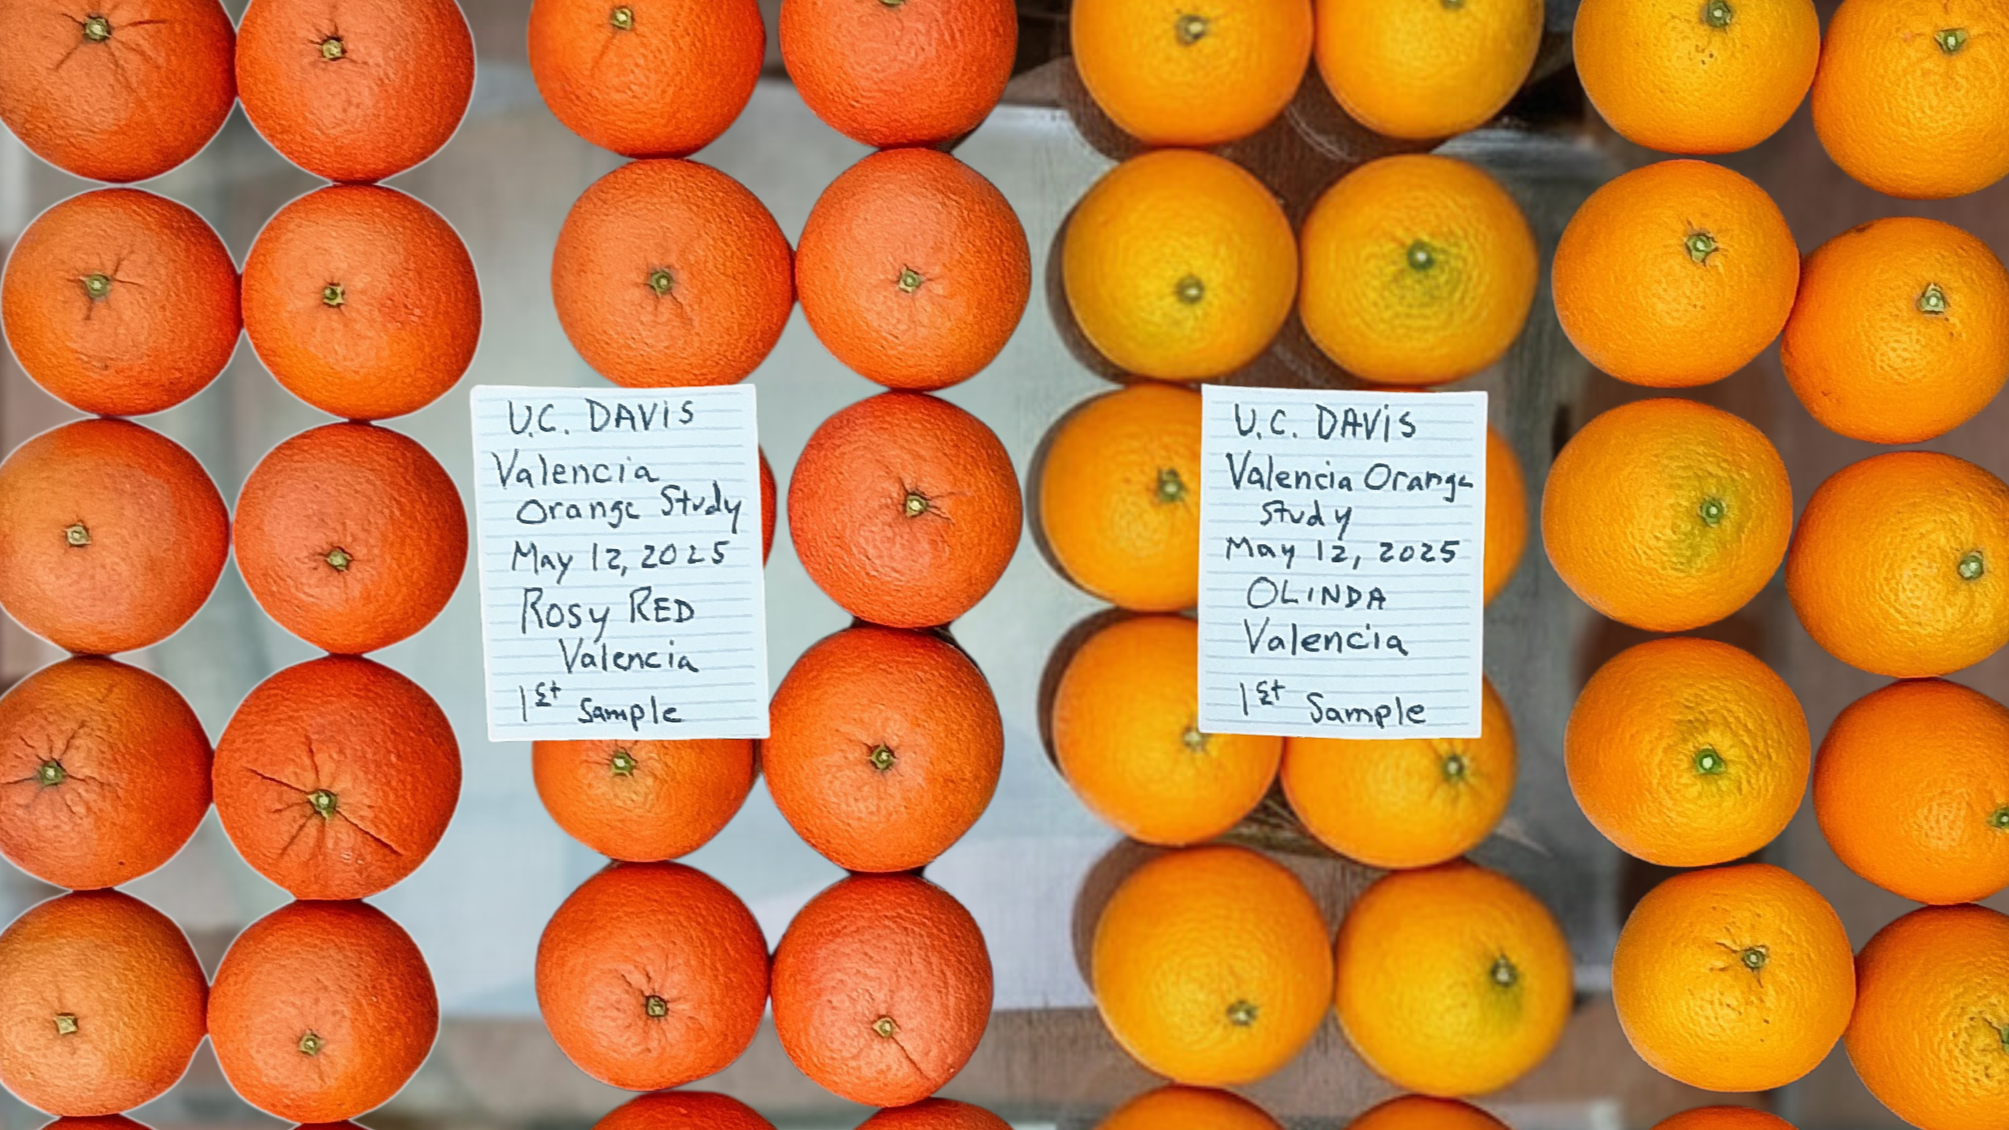 U.C. DAVIS
Valencia
Orange Study
May 12, 2025
ROSY RED
Valencia
1st Sample
U.C. DAVIS
Valencia Orange
Study
May 12, 2025
OLINDA
Valencia
1st Sample